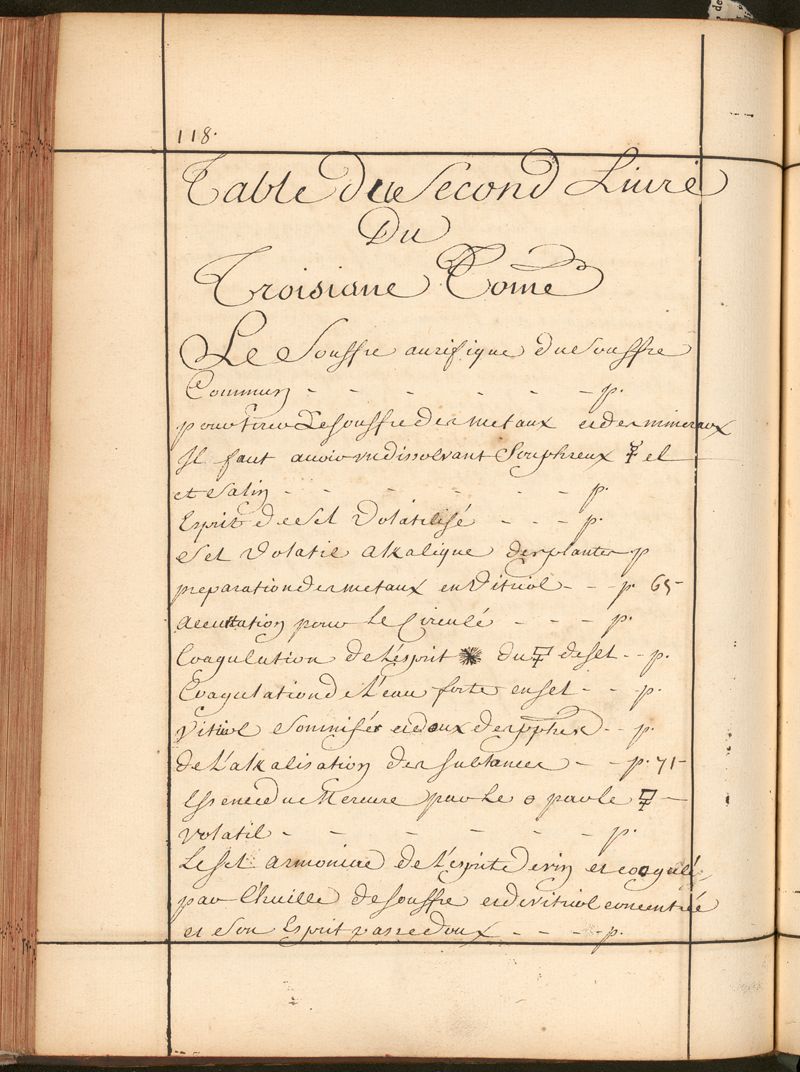 118.
Table du Second Liure
Du
Troisiame Tome
Le Souffre aurifique du Souffre
Commun - - - - - - p.
pour tirer Le souffre des metaux et des mineraux
Il faut auoir un dissolvant Sulphreux 🜿 el
et salin - - - - - - p.
Esprit de sel volatilisé - - - p.
Sel volatil alkalique des plantes p
preparation des metaux en vitriol - - p. 65
pour le Circulé - - - p.
Coagulation de L'esprit ✺ du de sel - - p.
Coagulation de L'eau forte en sel - - p.
Vitriol et doux des pphes - - p.
de L'alkalisation des substances - - p. 71
Essence du Mercure par le par le
volatil - - - - - - p.
Le sel armoniac de L'esprit de vin et coagulé
par l'huille de souffre et de vitriol concentrée
et son Esprit doux - - - - p.